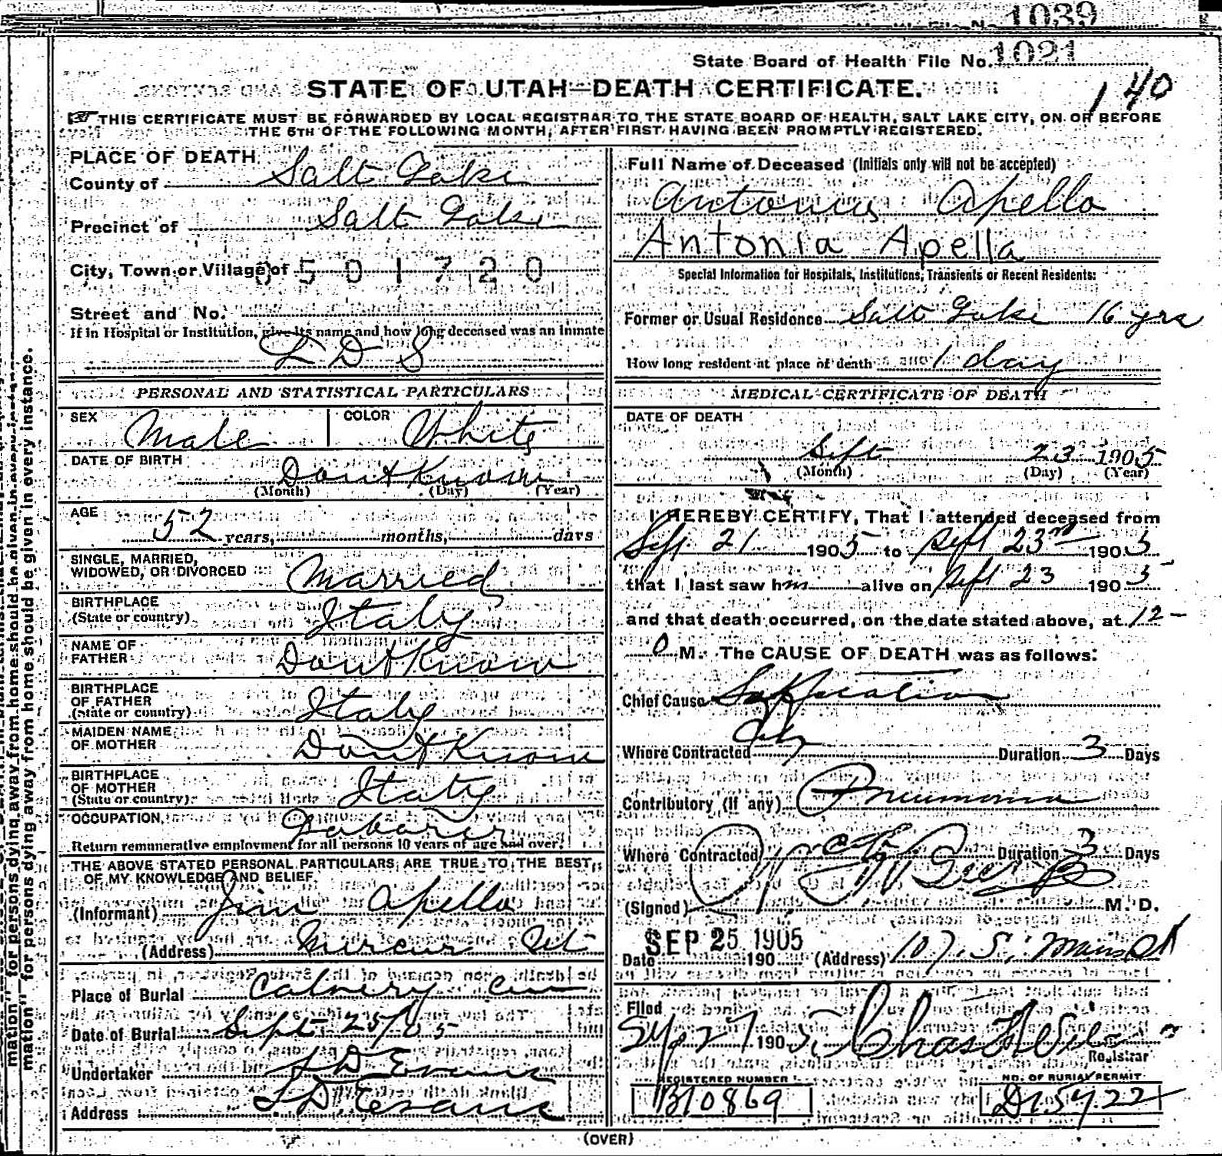 1039
State Board of Health File No. 1021
140
STATE OF UTAH—DEATH CERTIFICATE.
THIS CERTIFICATE MUST BE FORWARDED BY LOCAL REGISTRAR TO THE STATE BOARD OF HEALTH, SALT LAKE CITY, ON OR BEFORE
THE 5TH OF THE FOLLOWING MONTH, AFTER FIRST HAVING BEEN PROMPTLY REGISTERED.
PLACE OF DEATH
County of Salt Lake
Precinct of Salt Lake
City, Town or Village of 0501720
Street and No.
If in Hospital or Institution, give its name and how long deceased was an inmate
L D S
PERSONAL AND STATISTICAL PARTICULARS
SEX Male COLOR White
DATE OF BIRTH Dont Know
(Month) (Day) (Year)
AGE 52 years, months, days
SINGLE, MARRIED,
WIDOWED, OR DIVORCED Married
BIRTHPLACE
(State or country) Italy
NAME OF
FATHER Dont Know
BIRTHPLACE
OF FATHER
(State or country) Italy
MAIDEN NAME
OF MOTHER Dont Know
BIRTHPLACE
OF MOTHER
(State or country) Italy
OCCUPATION Laborer
Return remunerative employment for all persons 10 years of age and over.
THE ABOVE STATED PERSONAL PARTICULARS ARE TRUE TO THE BEST
OF MY KNOWLEDGE AND BELIEF
(Informant) Jim Apella
(Address) Mercur Ut
Place of Burial Calvery Cem
Date of Burial Sept 25/05
Undertaker S D Evans
Address S D Evans
Full Name of Deceased (Initials only will not be accepted)
Antonia Apella
Antonia Apella
Special Information for Hospitals, Institutions, Transients or Recent Residents:
Former or Usual Residence Salt Lake 16 yrs
How long resident at place of death 1 day
MEDICAL CERTIFICATE OF DEATH
DATE OF DEATH
Sept 23 1905
(Month) (Day) (Year)
I HEREBY CERTIFY, That I attended deceased from
Sept 21 1905 to Sept 23rd 1905
that I last saw him alive on Sept 23 1905
and that death occurred, on the date stated above, at 12-
0 M. The CAUSE OF DEATH was as follows:
Chief Cause Suffocation
Where Contracted City Duration 3 Days
Contributory (if any) Pneumonia
Where Contracted City Duration 3 Days
(Signed) M. D.
SEP 25 1905
Date 190 (Address) 107 S. Main St
Filed
Sep 27 1905 Chas
Registrar
REGISTERED NUMBER NO. OF BURIAL PERMIT
B10869 D15422
(OVER)
mation" for persons dying away from home should be given in every instance.